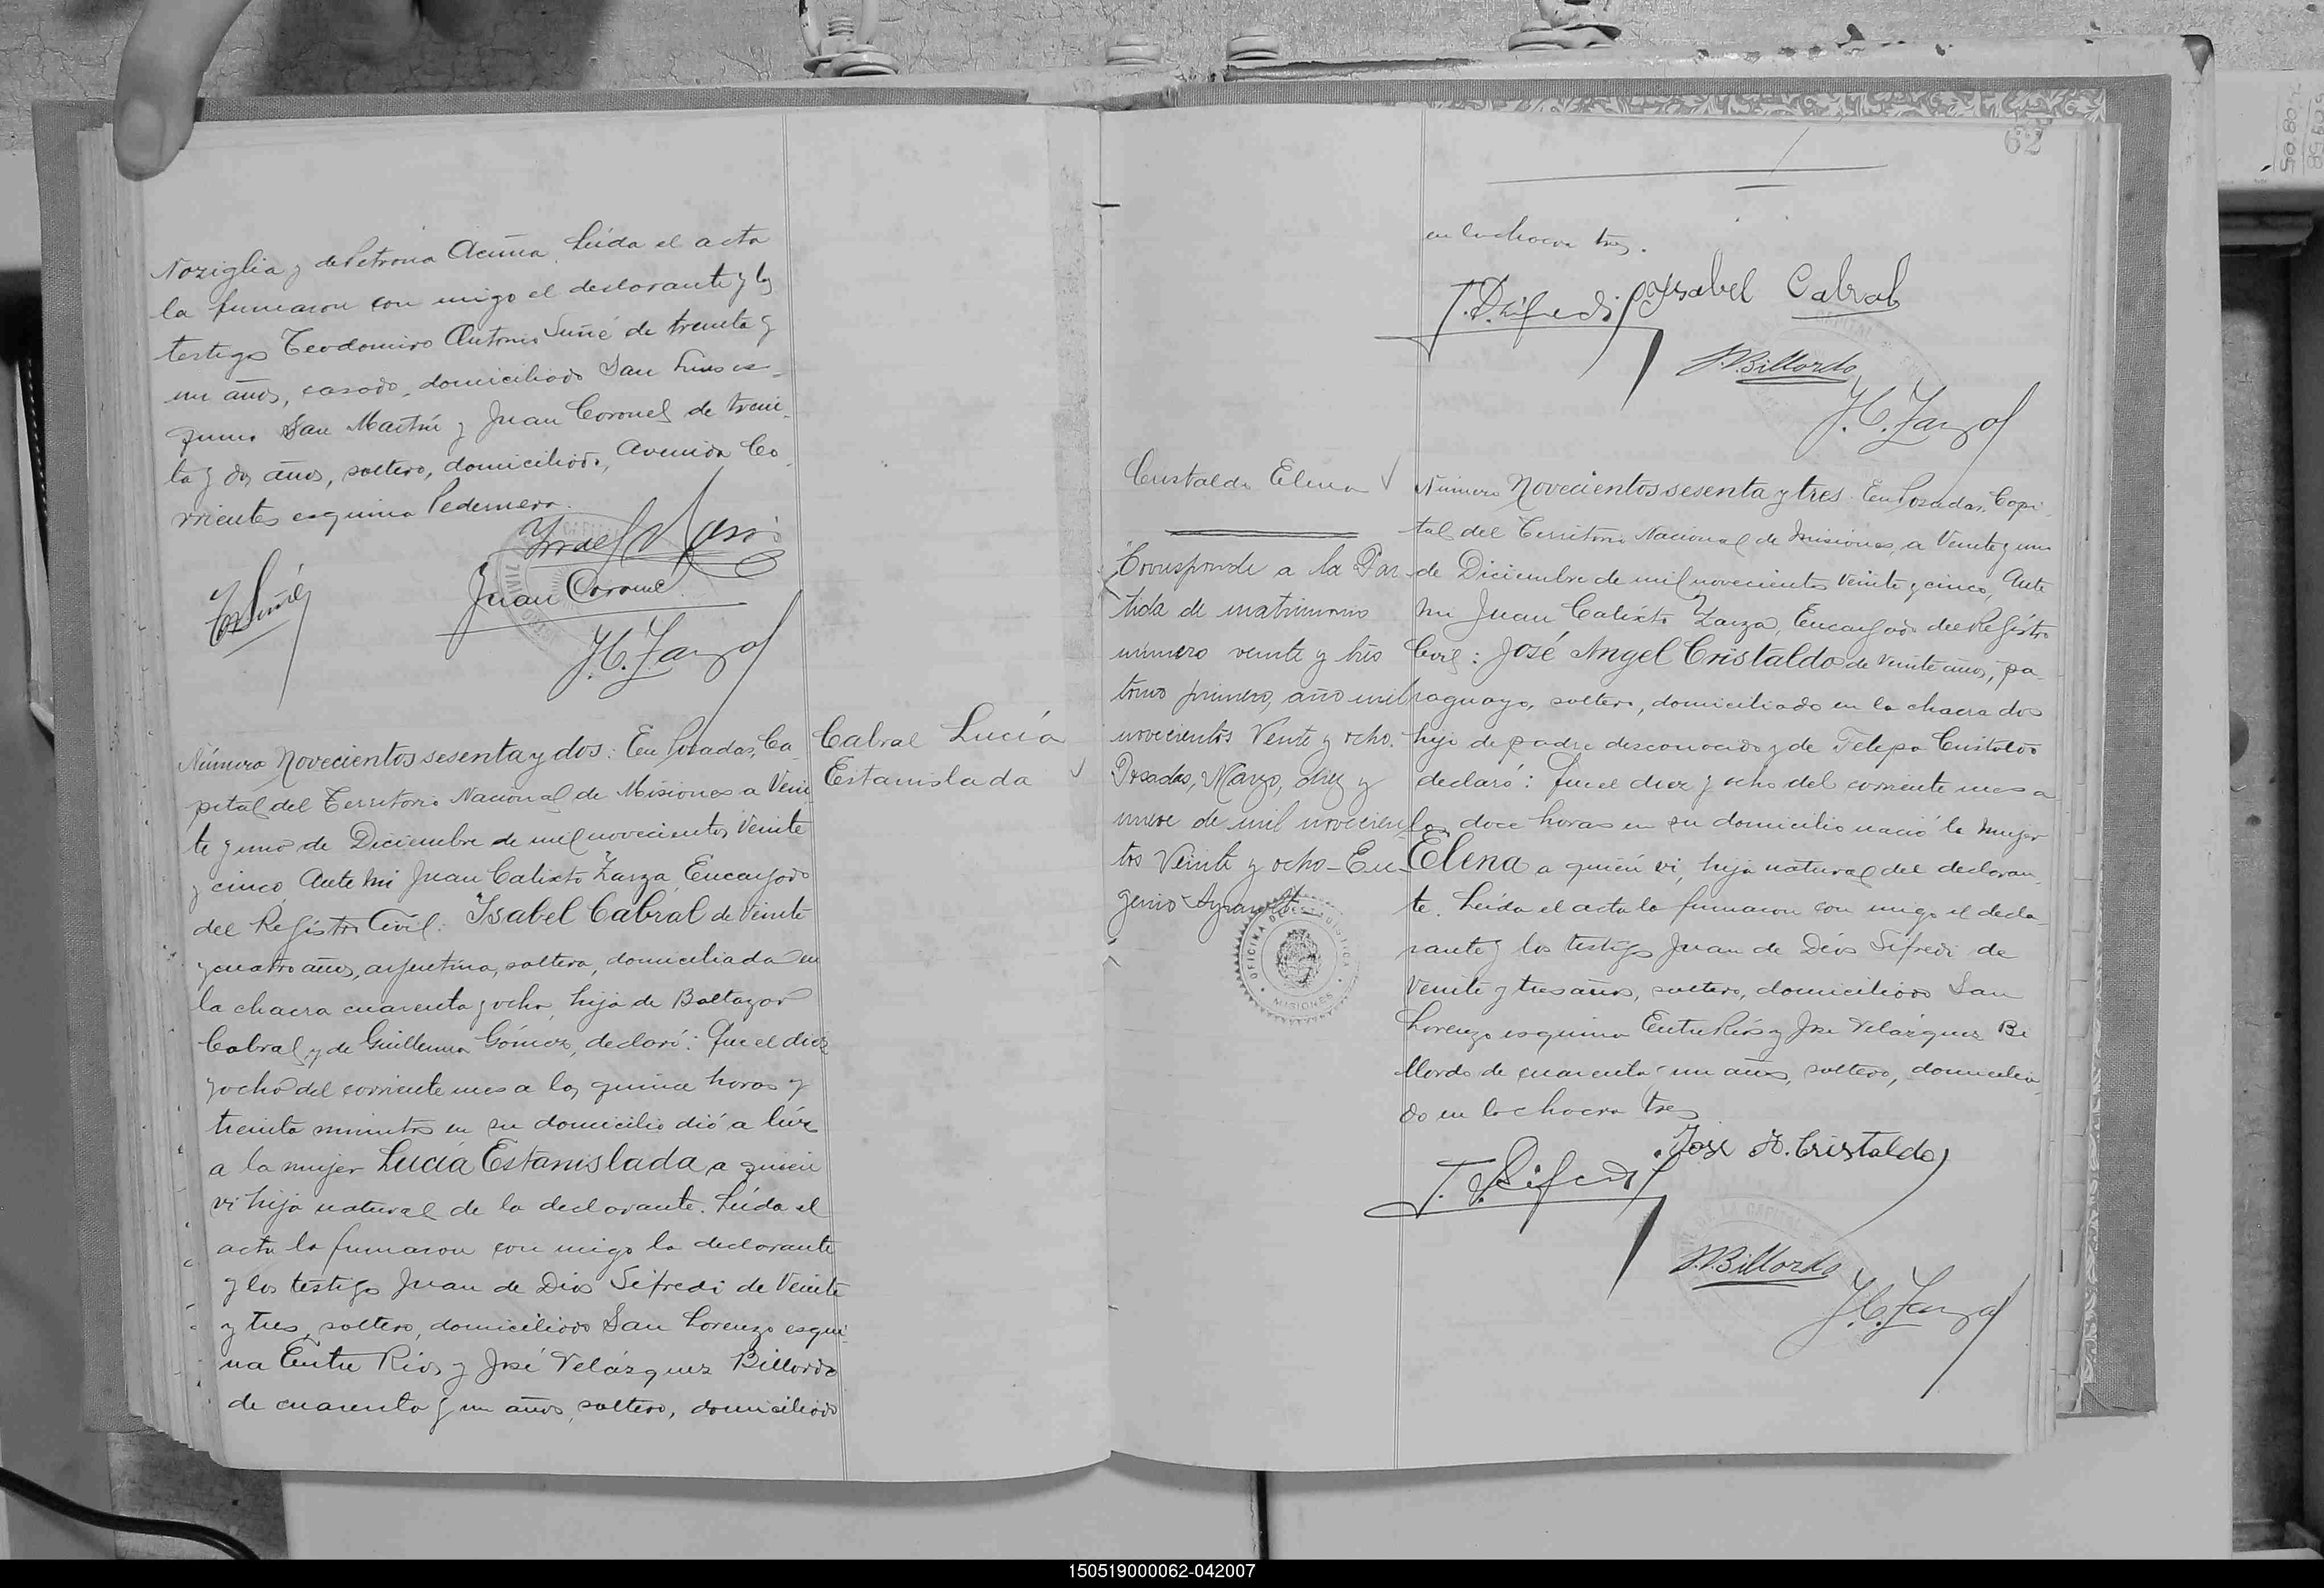 Noziglia y de Petrona Acuña. Leída el acta
la firmaron con migo el declarante y los
testigos Teodomiro Antonio Suñé de treinta y
un años, casado, domiciliado San Luis es-
quina San Martín y Juan Coronel de trein-
ta y dos años, soltero, domiciliado, Avenida Co-
rrientes esquina Pedernera.
Juan Coronel
J. C. Zarza
Número Novecientos sesenta y dos: En Posadas, Ca-
pital del Territorio Nacional de Misiones a Vein
te y uno de Diciembre de mil novecientos Veinte
y cinco, Ante mi Juan Calixto Zarza, Encargado
del Registro Civil: Isabel Cabral de Veinte
y cuatro años, argentina, soltera, domiciliada en
la chacra cuarenta y ocho, hija de Baltazar
Cabral y de Guillerma Gómez, declaró: Que el diez
y ocho del corriente mes a las quince horas y
treinta minutos en su domicilio dió a lúz
a la mujer Lucía Estanislada a quien
vi hija natural de la declarante. Leída el
acta la firmaron con migo la declarante
y los testigos Juan de Dios Sifredi de Veinte
y tres, soltero, domiciliado San Lorenzo esqui-
na Entre Ríos y José Velázquez Billordo
de cuarenta y un años, soltero, domiciliado
Cabral Lucía
Estanislada
62
en la chacra tres.
J. D. Sifredi Isabel Cabral
J. V. Billordo
J. C. Zarza
Cristaldo Elena
Corresponde a la Par-
tida de matrimonio
número veinte y tres
tomo primero, año mil
novecientos Veinte y ocho.
Posadas, Marzo, diez y
nueve de mil novecien-
tos Veinte y ocho - Eu-
genio
OFICINA DE ESTADISTICA
MISIONES
Número Novecientos sesenta y tres. En Posadas, Capi-
tal del Territorio Nacional de Misiones, a Veinte y uno
de Diciembre de mil novecientos Veinte y cinco, Ante
mi Juan Calixto Zarza, Encargado del Registro
Civil: José Angel Cristaldo de Veinte años, pa-
raguayo, soltero, domiciliado en la chacra dos
hijo de padre desconocido y de Felepa Cristaldo
declaró: Que el diez y ocho del corriente mes a
las doce horas en su domicilio nació la mujer
Elena a quién vi, hija natural del declaran-
te. Leída el acta la firmaron con migo el decla-
rante y los testigos Juan de Diós Sifredi de
Veinte y tres años, soltero, domiciliado San
Lorenzo esquina Entre Ríos y José Velázquez Bi
llordo de cuarenta y un años, soltero, domicilia-
do en la chacra tres
José A. Cristaldo
J. D. Sifredi
J. V. Billordo
J. C. Zarza
150519000062-042007